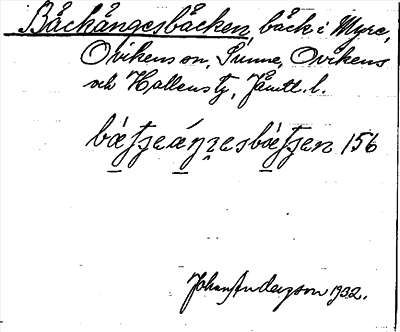 Båckångesbäcken, bäck i Myre,
Ovikens sn, Sunne, Ovikens
och Hallens tg, Jämtl. l.
bátʃeáŋresbätʃen 156
Johan Anderzson 1932.